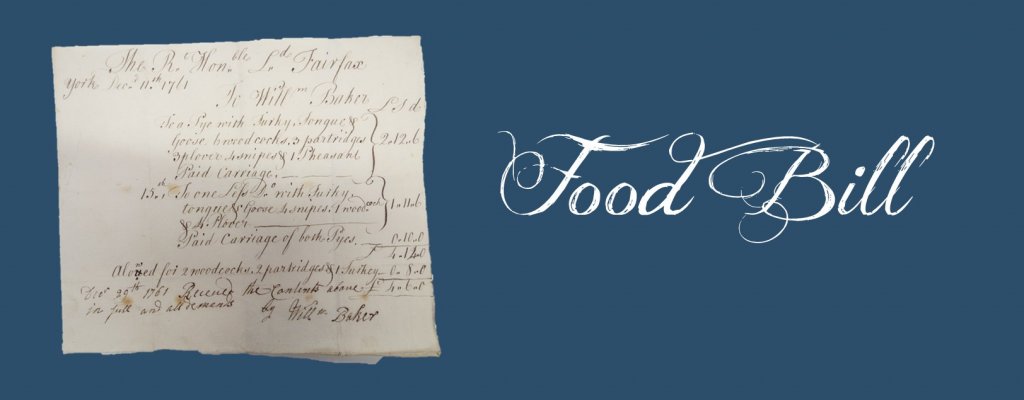 The Rt. Honble Ld Fairfax
York Decr. 11th 1761
To Willm Baker
L S d
To a Pye with Turky, Tongue &
Goose 6 woodcocks, 3 partridges
3 plover 4 snipes & 1 Pheasant
Paid Carriage
2„12„6
15th To one Less Do with Turky,
tongue & Goose 4 snipes, 1 woodcock
& 4 Plover
1„11„6
Paid Carriage of both Pyes 0„10„0
4„14„0
Alowed for 2 woodcocks, 2 partridges & 1 Turkey 0„8„0
£ 4„6„0
29th 1761 Receved the Contents above
in full and all demands
by Willm Baker
Food Bill